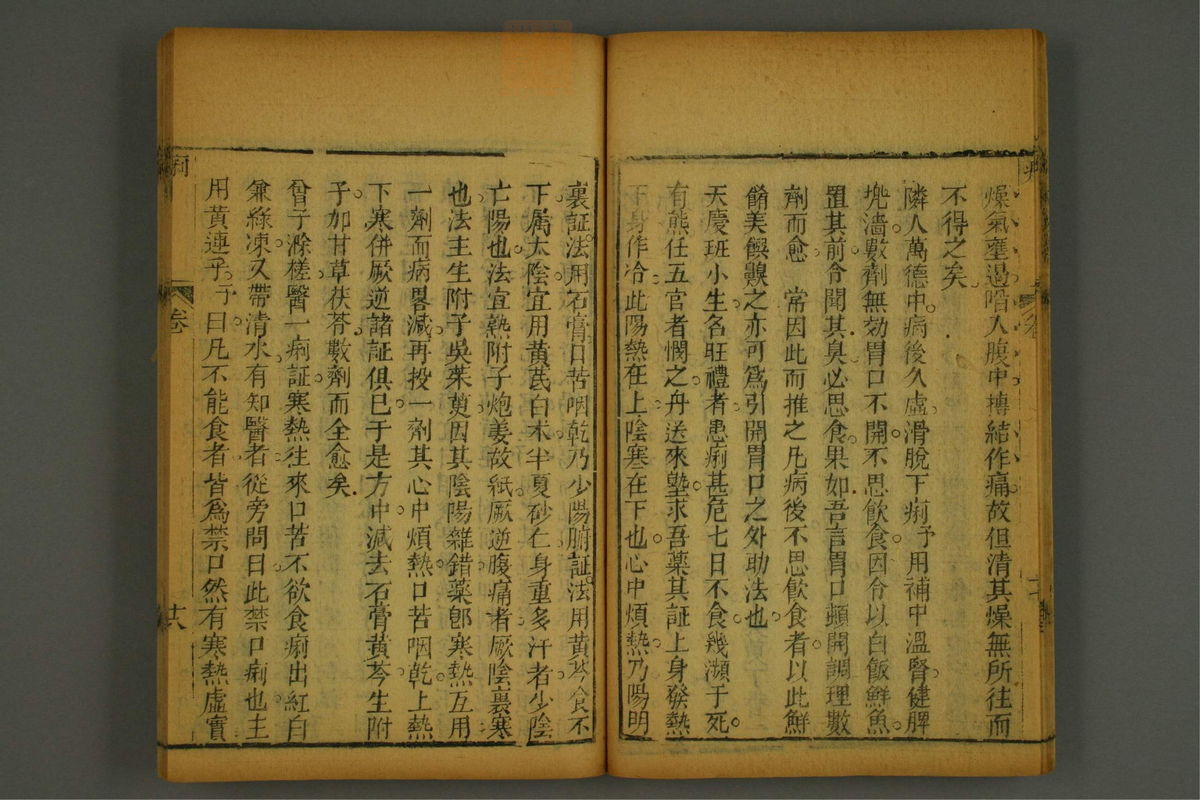 燥氣壅遏啗人腹中搏結作痛故但清其燥無所往而
不得之矣
隣人萬德中病後久虛滑脫下痢予用補中溫腎健脾
堍濇數劑無効胃口不開不思飲食因令以白飯鮮魚
置其前令聞其臭必思食果如吾言胃口頓開調理數
劑而愈 常因此而推之凡病後不思飲食者以此鮮
餚美饌齅之亦可為引開胃口之外助法也
天慶班小生名旺禮者患痢甚危七日不食幾瀕于死
有熊任五官者憫之舟送來塾求吾藥其証上身發熱
下身作冷此陽熱在上陰寒在下也心中煩熱乃陽明
裏証法用石膏口苦咽乾乃少陽腑証法用黃芩食不
下屬太陰宜用黃茋白朮半夏砂仁身重多汗者少陰
亡陽也法宜熱附子炮姜故紙厥逆腹痛者厥陰裏寒
也法主生附子吳茱萸因其陰陽雜錯藥卽寒熱互用
一劑而病畧減再投一劑其心中煩熱口苦咽乾上熱
下寒併厥逆諸証俱巳于是方中減去石膏黃芩生附
子加甘草茯苓數劑而全愈矣
曾子滁槎醫一痢証寒熱往來口苦不欲食痢出紅白
兼綠凍又帶清水有知醫者從旁問曰此禁口痢也主
用黃連予予曰凡不能食者皆為禁口然有寒熱虛實
痢
卷
十八